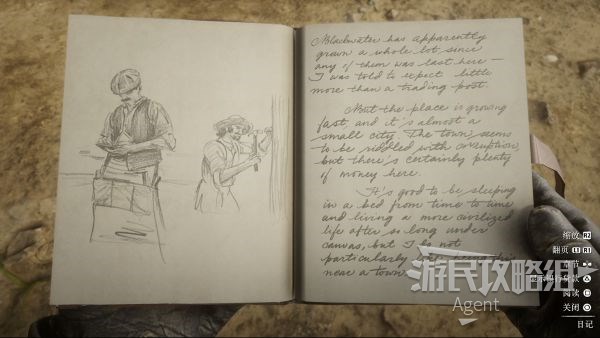 Blackwater has apparently
grown a whole lot since
any of them was last here —
I was told to expect little
more than a trading post.
But the place is growing
fast, and it's almost a
small city. The town seems
to be riddled with corruption,
but there's certainly plenty
of money here.
It's good to be sleeping
in a bed from time to time
and living a more civilized
life after so long under
canvas, but I do not
particularly
near a town
游民攻略组
Agent
缩放 R2
翻页 L1 R1
阅读
关闭
日记